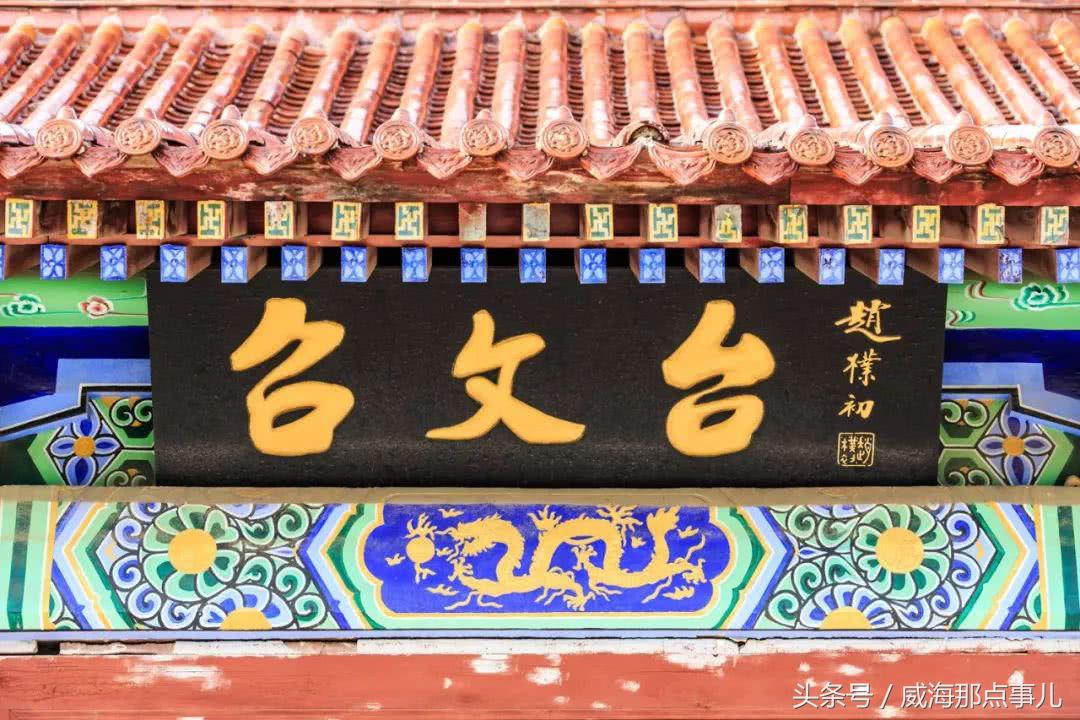 召文台
趙樸初
头条号 / 威海那点事儿